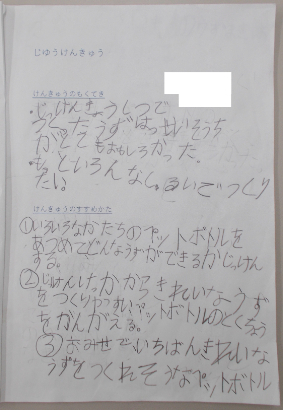 じゆうけんきゅう
けんきゅうのもくてき
・じっけんきょうしつで
つくったうずはっせいそうち
がとてもおもしろかった。
・もっといろんなしゅるいでつくり
たい
けんきゅうのすすめかた
①いろいろなかたちのペットボトルを
あつめてどんなうずができるかじっけん
する。
②じっけんけっかからきれいなうず
をつくりやすいペットボトルのとくちょう
をかんがえる。
③おみせでいちばんきれいな
うずをつくれそうなペットボトル